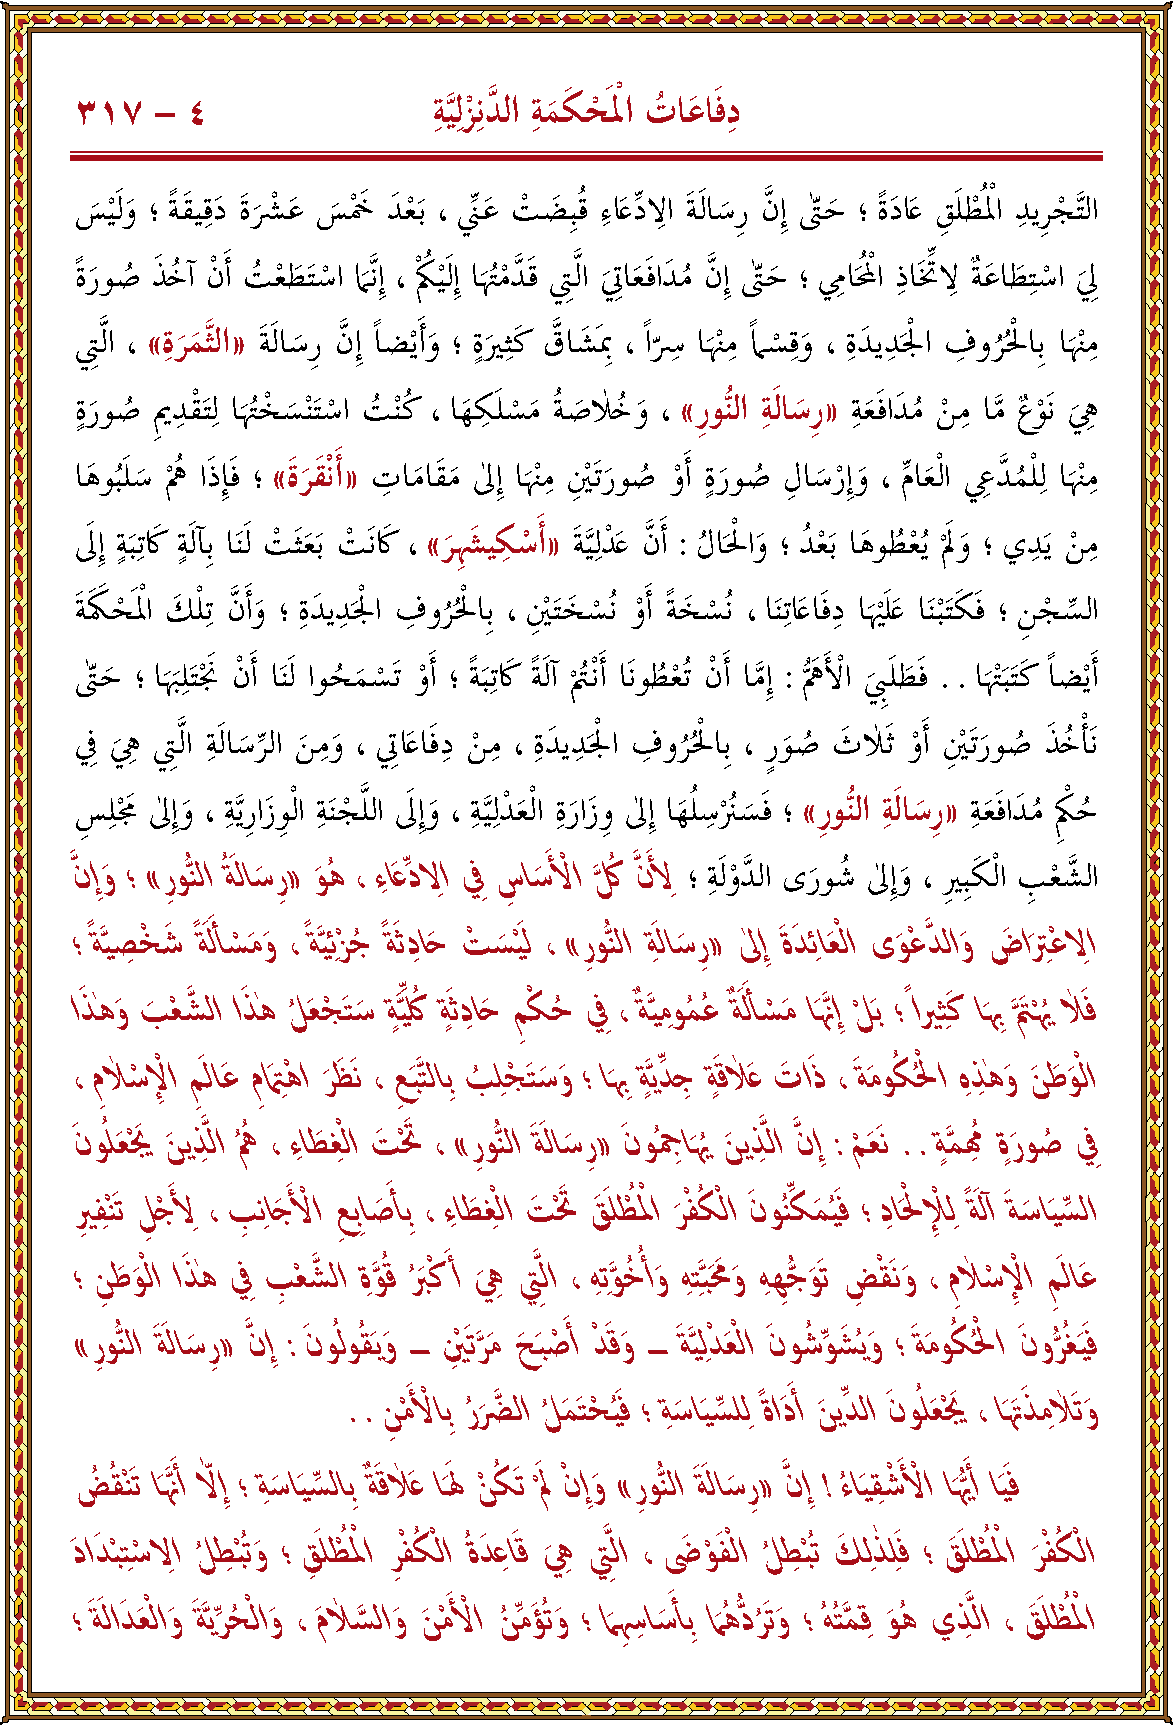 دِفَاعَاتُ الْمَحْكَمَةِ الدَّنِزْلِيَّةِ ٤ – ٣١٧
التَّجْرِيدِ الْمُطْلَقِ عَادَةً ؛ حَتّٰى إِنَّ رِسَالَةَ الِادِّعَاءِ قُبِضَتْ عَنِّي ، بَعْدَ خَمْسَ عَشْرَةَ دَقِيقَةً ؛ وَلَيْسَ
لِيَ اسْتِطَاعَةٌ لِاتِّخَاذِ الْمُحَامِي ؛ حَتّٰى إِنَّ مُدَافَعَاتِيَ الَّتِي قَدَّمْتُهَا إِلَيْكُمْ ، إِنَّمَا اسْتَطَعْتُ أَنْ آخُذَ صُورَةً
مِنْهَا بِالْحُرُوفِ الْجَدِيدَةِ ، وَقِسْماً مِنْهَا سِرّاً ، بِمَشَاقَّ كَثِيرَةٍ ؛ وَأَيْضاً إِنَّ رِسَالَةَ «الثَّمَرَةِ» ، الَّتِي
هِيَ نَوْعٌ مَّا مِنْ مُدَافَعَةِ «رِسَالَةِ النُّورِ» ، وَخُلَاصَةُ مَسْلَكِهَا ، كُنْتُ اسْتَنْسَخْتُهَا لِتَقْدِيمِ صُورَةٍ
مِنْهَا لِلْمُدَّعِي الْعَامِّ ، وَإِرْسَالِ صُورَةٍ أَوْ صُورَتَيْنِ مِنْهَا إِلٰى مَقَامَاتِ «أَنْقَرَةَ» ؛ فَإِذَا هُمْ سَلَبُوهَا
مِنْ يَدِي ؛ وَلَمْ يُعْطُوهَا بَعْدُ ؛ وَالْحَالُ : أَنَّ عَدْلِيَّةَ «أَسْكِيشَهِرَ» ، كَانَتْ بَعَثَتْ لَنَا بِآلَةٍ كَاتِبَةٍ إِلَى
السِّجْنِ ؛ فَكَتَبْنَا عَلَيْهَا دِفَاعَاتِنَا ، نُسْخَةً أَوْ نُسْخَتَيْنِ ، بِالْحُرُوفِ الْجَدِيدَةِ ؛ وَأَنَّ تِلْكَ الْمَحْكَمَةَ
أَيْضاً كَتَبَتْهَا . . فَطَلَبِيَ الْأَهَمُّ : إِمَّا أَنْ تُعْطُونَا أَنْتُمْ آلَةً كَاتِبَةً ؛ أَوْ تَسْمَحُوا لَنَا أَنْ نَجْتَلِبَهَا ؛ حَتّٰى
نَأْخُذَ صُورَتَيْنِ أَوْ ثَلَاثَ صُوَرٍ ، بِالْحُرُوفِ الْجَدِيدَةِ ، مِنْ دِفَاعَاتِي ، وَمِنَ الرِّسَالَةِ الَّتِي هِيَ فِي
حُكْمِ مُدَافَعَةِ «رِسَالَةِ النُّورِ» ؛ فَسَنُرْسِلُهَا إِلٰى وِزَارَةِ الْعَدْلِيَّةِ ، وَإِلَى اللَّجْنَةِ الْوِزَارِيَّةِ ، وَإِلٰى مَجْلِسِ
الشَّعْبِ الْكَبِيرِ ، وَإِلٰى شُورَى الدَّوْلَةِ ؛ لِأَنَّ كُلَّ الْأَسَاسِ فِي الِادِّعَاءِ ، هُوَ «رِسَالَةُ النُّورِ» ؛ وَإِنَّ
الِاعْتِرَاضَ وَالدَّعْوَى الْعَائِدَةَ إِلٰى «رِسَالَةِ النُّورِ» ، لَيْسَتْ حَادِثَةً جُزْئِيَّةً ، وَمَسْأَلَةً شَخْصِيَّةً ؛
فَلَا يُهْتَمَّ بِهَا كَثِيراً ؛ بَلْ إِنَّهَا مَسْأَلَةٌ عُمُومِيَّةٌ ، فِي حُكْمِ حَادِثَةٍ كُلِّيَّةٍ سَتَجْعَلُ هٰذَا الشَّعْبَ وَهٰذَا
الْوَطَنَ وَهٰذِهِ الْحُكُومَةَ ، ذَاتَ عَلَاقَةٍ جِدِّيَّةٍ بِهَا ؛ وَسَتَجْلِبُ بِالتَّبَعِ ، نَظَرَ اهْتِمَامِ عَالَمِ الْإِسْلَامِ ،
فِي صُورَةٍ مُهِمَّةٍ . . نَعَمْ : إِنَّ الَّذِينَ يُهَاجِمُونَ «رِسَالَةَ النُّورِ» ، تَحْتَ الْغِطَاءِ ، هُمُ الَّذِينَ يَجْعَلُونَ
السِّيَاسَةَ آلَةً لِلْإِلْحَادِ ؛ فَيُمَكِّنُونَ الْكُفْرَ الْمُطْلَقَ تَحْتَ الْغِطَاءِ ، بِأَصَابِعِ الْأَجَانِبِ ، لِأَجْلِ تَنْفِيرِ
عَالَمِ الْإِسْلَامِ ، وَنَقْضِ تَوَجُّهِهِ وَمَحَبَّتِهِ وَأُخُوَّتِهِ ، الَّتِي هِيَ أَكْبَرُ قُوَّةِ الشَّعْبِ فِي هٰذَا الْوَطَنِ ؛
فَيَغُرُّونَ الْحُكُومَةَ ؛ وَيُشَوِّشُونَ الْعَدْلِيَّةَ – وَقَدْ أَصْبَحَ مَرَّتَيْنِ – وَيَقُولُونَ : إِنَّ «رِسَالَةَ النُّورِ»
وَتَلَامِذَتَهَا ، يَجْعَلُونَ الدِّينَ أَدَاةً لِلسِّيَاسَةِ ؛ فَيُحْتَمَلُ الضَّرَرُ بِالْأَمْنِ . .
فَيَا أَيُّهَا الْأَشْقِيَاءُ ! إِنَّ «رِسَالَةَ النُّورِ» وَإِنْ لَمْ تَكُنْ لَهَا عَلَاقَةٌ بِالسِّيَاسَةِ ؛ إِلَّا أَنَّهَا تَنْقُضُ
الْكُفْرَ الْمُطْلَقَ ؛ فَلِذٰلِكَ تُبْطِلُ الْفَوْضَى ، الَّتِي هِيَ قَاعِدَةُ الْكُفْرِ الْمُطْلَقِ ؛ وَتُبْطِلُ الِاسْتِبْدَادَ
الْمُطْلَقَ ، الَّذِي هُوَ قِمَّتُهُ ؛ وَتَرُدُّهُمَا بِأَسَاسِهِمَا ؛ وَتُؤَمِّنُ الْأَمْنَ وَالسَّلَامَ ، وَالْحُرِّيَّةَ وَالْعَدَالَةَ ؛